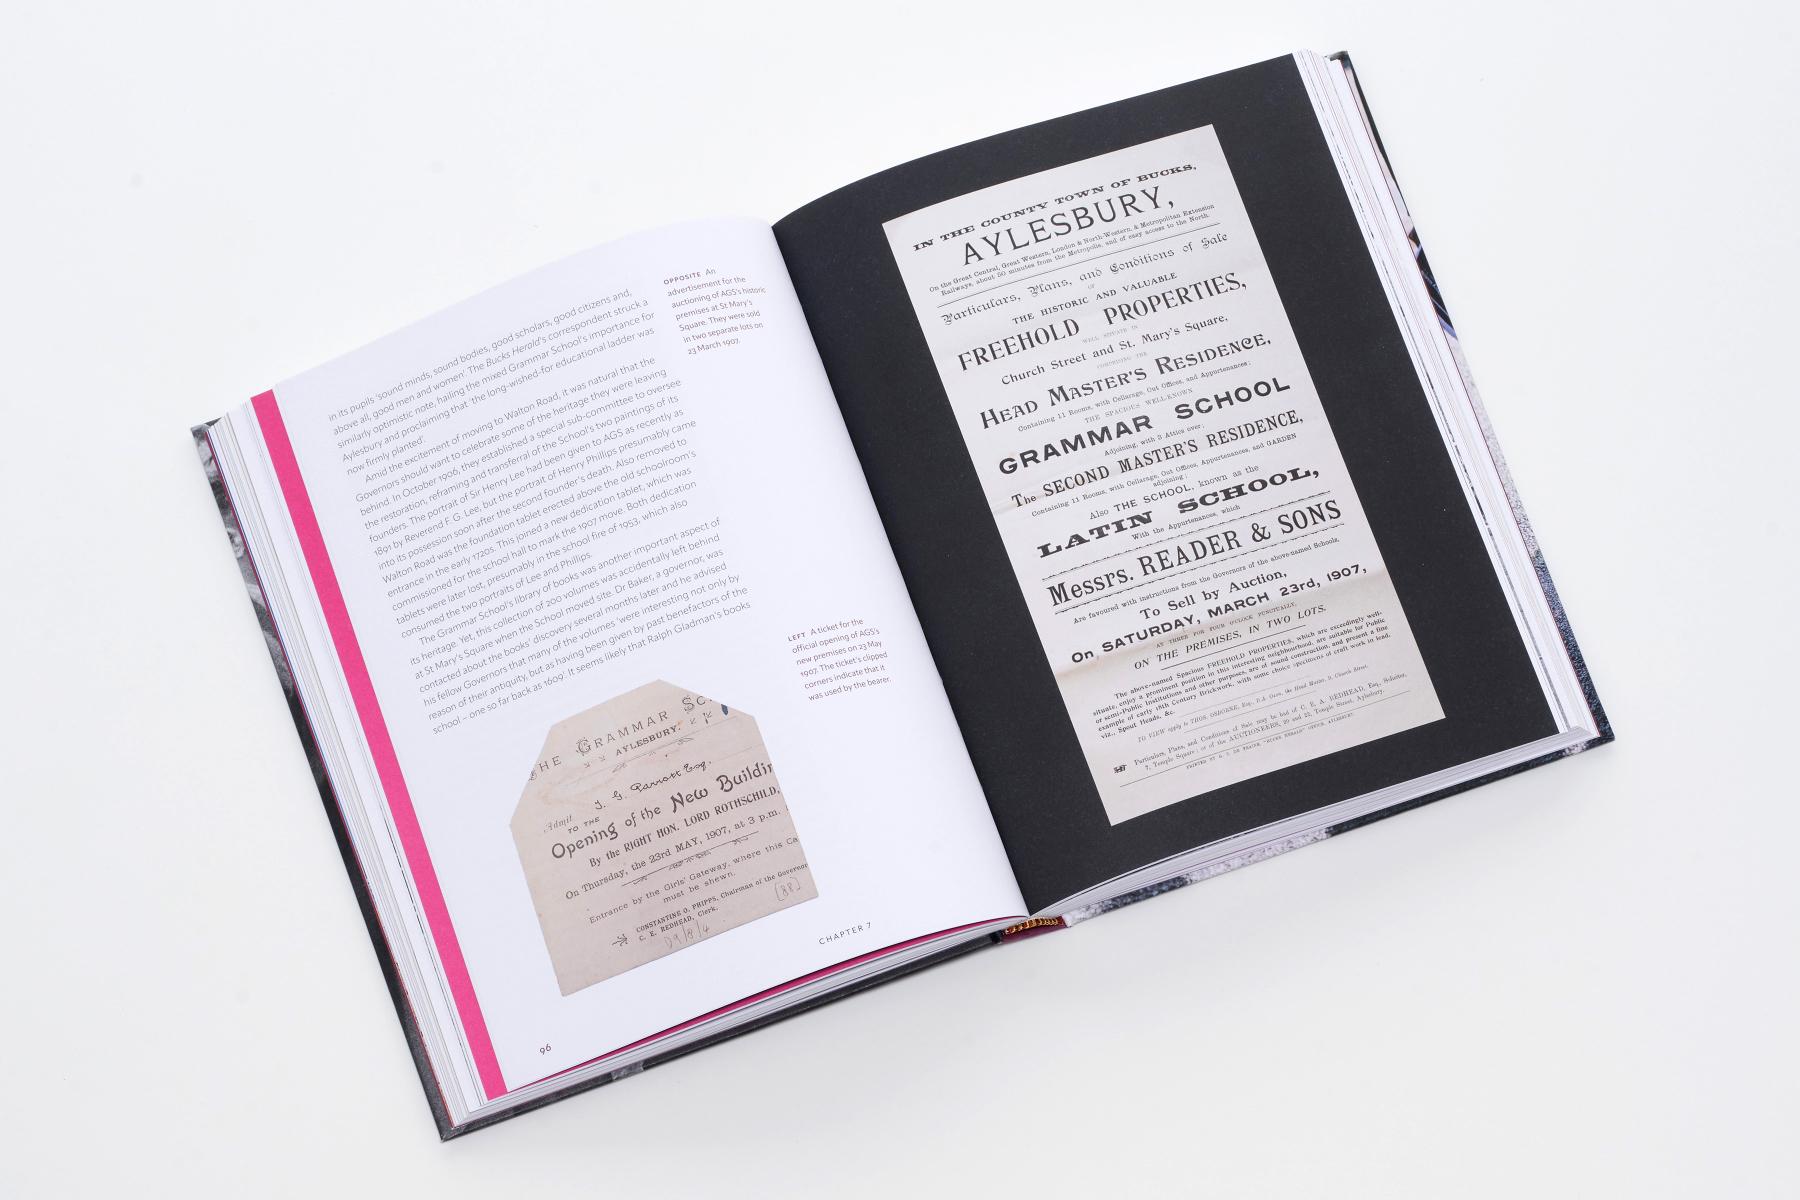 in its pupils 'sound minds, sound bodies, good scholars, good citizens and,
above all, good men and women'. The Bucks Herald's correspondent struck a
similarly optimistic note, hailing the mixed Grammar School's importance for
Aylesbury and proclaiming that 'the long-wished-for educational ladder was
now firmly planted'.
Amid the excitement of moving to Walton Road, it was natural that the
Governors should want to celebrate some of the heritage they were leaving
behind. In October 1906, they established a special sub-committee to oversee
the restoration, reframing and transferral of the School's two paintings of its
founders. The portrait of Sir Henry Lee had been given to AGS as recently as
1891 by Reverend F. G. Lee, but the portrait of Henry Phillips presumably came
into its possession soon after the second founder's death. Also removed to
Walton Road was the foundation tablet erected above the old schoolroom's
entrance in the early 1720s. This joined a new dedication tablet, which was
commissioned for the school hall to mark the 1907 move. Both dedication
tablets were later lost, presumably in the school fire of 1953, which also
consumed the two portraits of Lee and Phillips.
The Grammar School's library of books was another important aspect of
its heritage. Yet, this collection of 200 volumes was accidentally left behind
at St Mary's Square when the School moved site. Dr Baker, a governor, was
contacted about the books' discovery several months later and he advised
his fellow Governors that many of the volumes 'were interesting not only by
reason of their antiquity, but as having been given by past benefactors of the
school – one so far back as 1609'. It seems likely that Ralph Gladman's books
OPPOSITE An
advertisement for the
auctioning of AGS's historic
premises at St Mary's
Square. They were sold
in two separate lots on
23 March 1907.
LEFT A ticket for the
official opening of AGS's
new premises on 23 May
1907. The ticket's clipped
corners indicate that it
was used by the bearer.
THE GRAMMAR SC
AYLESBURY.
Admit J. G. Parrott Esq.
TO THE
Opening of the New Buildin
By the RIGHT HON. LORD ROTHSCHILD,
On Thursday, the 23rd MAY, 1907, at 3 p.m.
Entrance by the Girls' Gateway, where this Ca
must be shewn.
CONSTANTINE O. PHIPPS, Chairman of the Governor
C. E. REDHEAD, Clerk.
D9/8/4
[88]
96
CHAPTER 7
IN THE COUNTY TOWN OF BUCKS,
AYLESBURY,
On the Great Central, Great Western, London & North-Western, & Metropolitan Extension
Railways, about 50 minutes from the Metropolis, and of easy access to the North.
Particulars, Plans, and Conditions of Sale
OF
THE HISTORIC AND VALUABLE
FREEHOLD PROPERTIES,
WELL SITUATE IN
Church Street and St. Mary's Square,
COMPRISING THE
HEAD MASTER'S RESIDENCE,
Containing 11 Rooms, with Cellarage, Out Offices, and Appurtenances;
THE SPACIOUS WELL-KNOWN
GRAMMAR SCHOOL
Adjoining, with 3 Attics over;
The SECOND MASTER'S RESIDENCE,
Containing 11 Rooms, with Cellarage, Out Offices, Appurtenances, and GARDEN
adjoining;
Also THE SCHOOL, known as the
LATIN SCHOOL,
With the Appurtenances, which
Messrs. READER & SONS
Are favoured with instructions from the Governors of the above-named Schools,
To Sell by Auction,
On SATURDAY, MARCH 23rd, 1907,
AT THREE FOR FOUR O'CLOCK PUNCTUALLY,
ON THE PREMISES, IN TWO LOTS.
The above-named Spacious FREEHOLD PROPERTIES, which are exceedingly well-
situate, enjoy a prominent position in this interesting neighbourhood, are suitable for Public
or semi-Public Institutions and other purposes, are of sound construction, and present a fine
example of early 18th Century Brickwork, with some choice specimens of craft work in lead,
viz., Spout Heads, &c.
TO VIEW apply to THOS. OSBORNE, Esq., B.A. Oxon, the Head Master, 9, Church Street.
Particulars, Plans, and Conditions of Sale may be had of C. E. A. REDHEAD, Esq., Solicitor,
7, Temple Square; or of the AUCTIONEERS, 20 and 22, Temple Street, Aylesbury.
PRINTED BY G. T. DE FRAINE, "BUCKS HERALD" OFFICE, AYLESBURY.